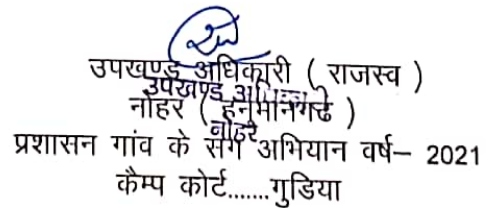 उपखण्ड अधिकारी ( राजस्व )
उपखण्ड अधिकारी
नोहर ( हनुमानगढ )
नोहर
प्रशासन गांव के संग अभियान वर्ष– 2021
कैम्प कोर्ट.......गुडिया